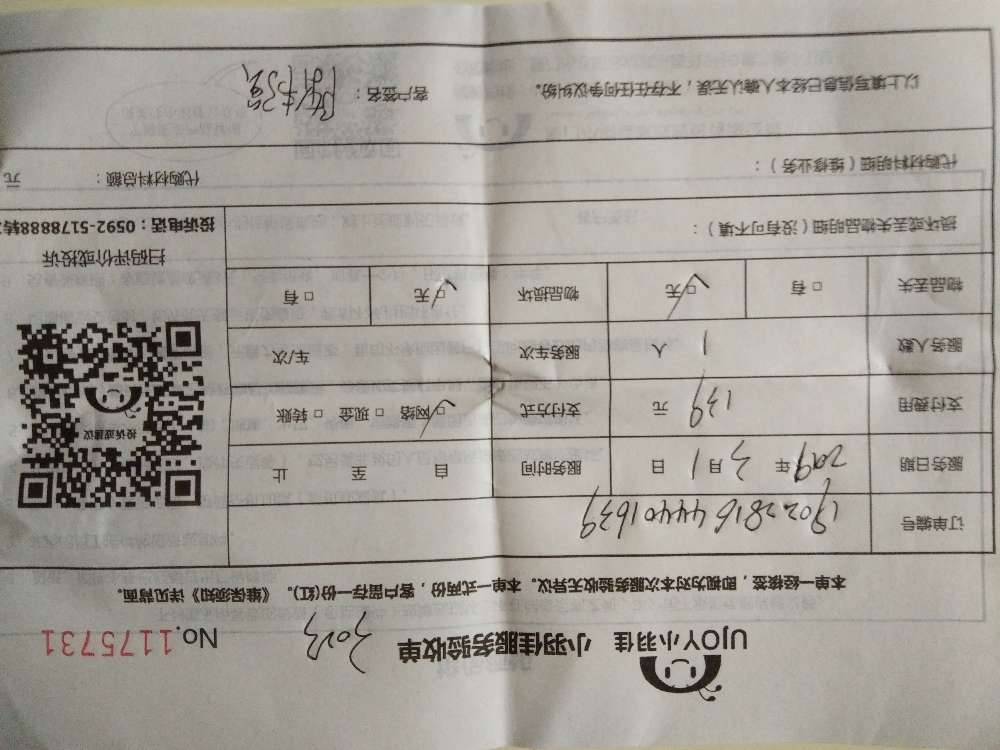 UJOY小羽佳 小羽佳服务验收单 No.1175731
本单一经接签，即视为对本次服务验收无异议。本单一式两份，客户留存一份(红)。《维保须知》详见背面。
订单编号 1902281644401639
服务日期 2019年 3月 1日 服务时间 自 至 止
支付费用 139 元 支付方式 ☑网络 □现金 □转账
服务人数 1 人 服务车次 车/次
物品丢失 □有 ☑无 物品损坏 ☑无 □有
投诉或建议
扫码评价或投诉
投诉电话：0592-5178888转
损坏或丢失物品明细（没有可不填）：
代购材料明细（维修业务）： 代购材料总额： 元
以上填写信息已经本人确认无误，不存在任何争议纠纷。 客户签名：